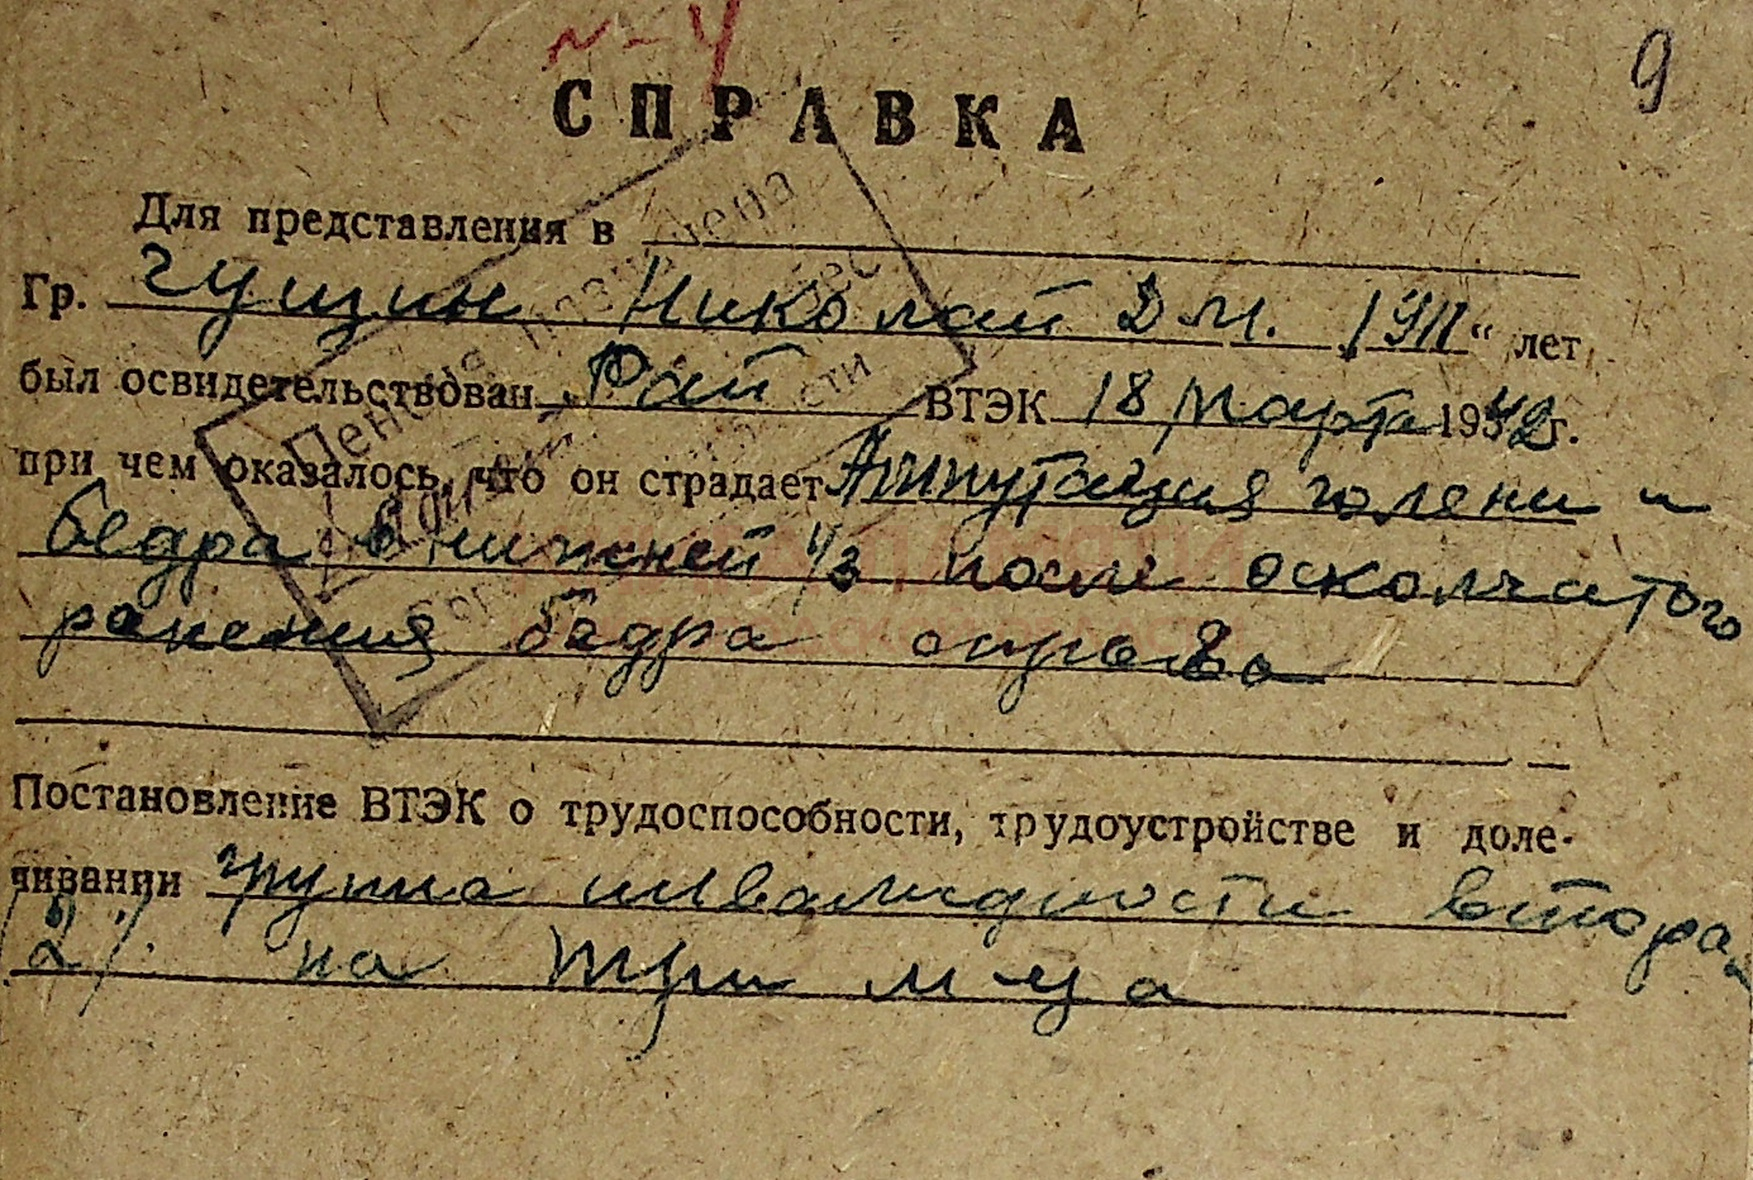 N-4
9
СПРАВКА
Для представления в
Гр. Гущин Николай Дм. 1911 " лет
был освидетельствован Рай ВТЭК 18 марта 1942 г.
при чем оказалось, что он страдает Ампутация голени и
бедра в нижней 1/3 после оскольчатого
ранения бедра справа
Постановление ВТЭК о трудоспособности, трудоустройстве и доле-
чивании група инвалидности вторая
(2). на три м-ца
Пенсия назначена